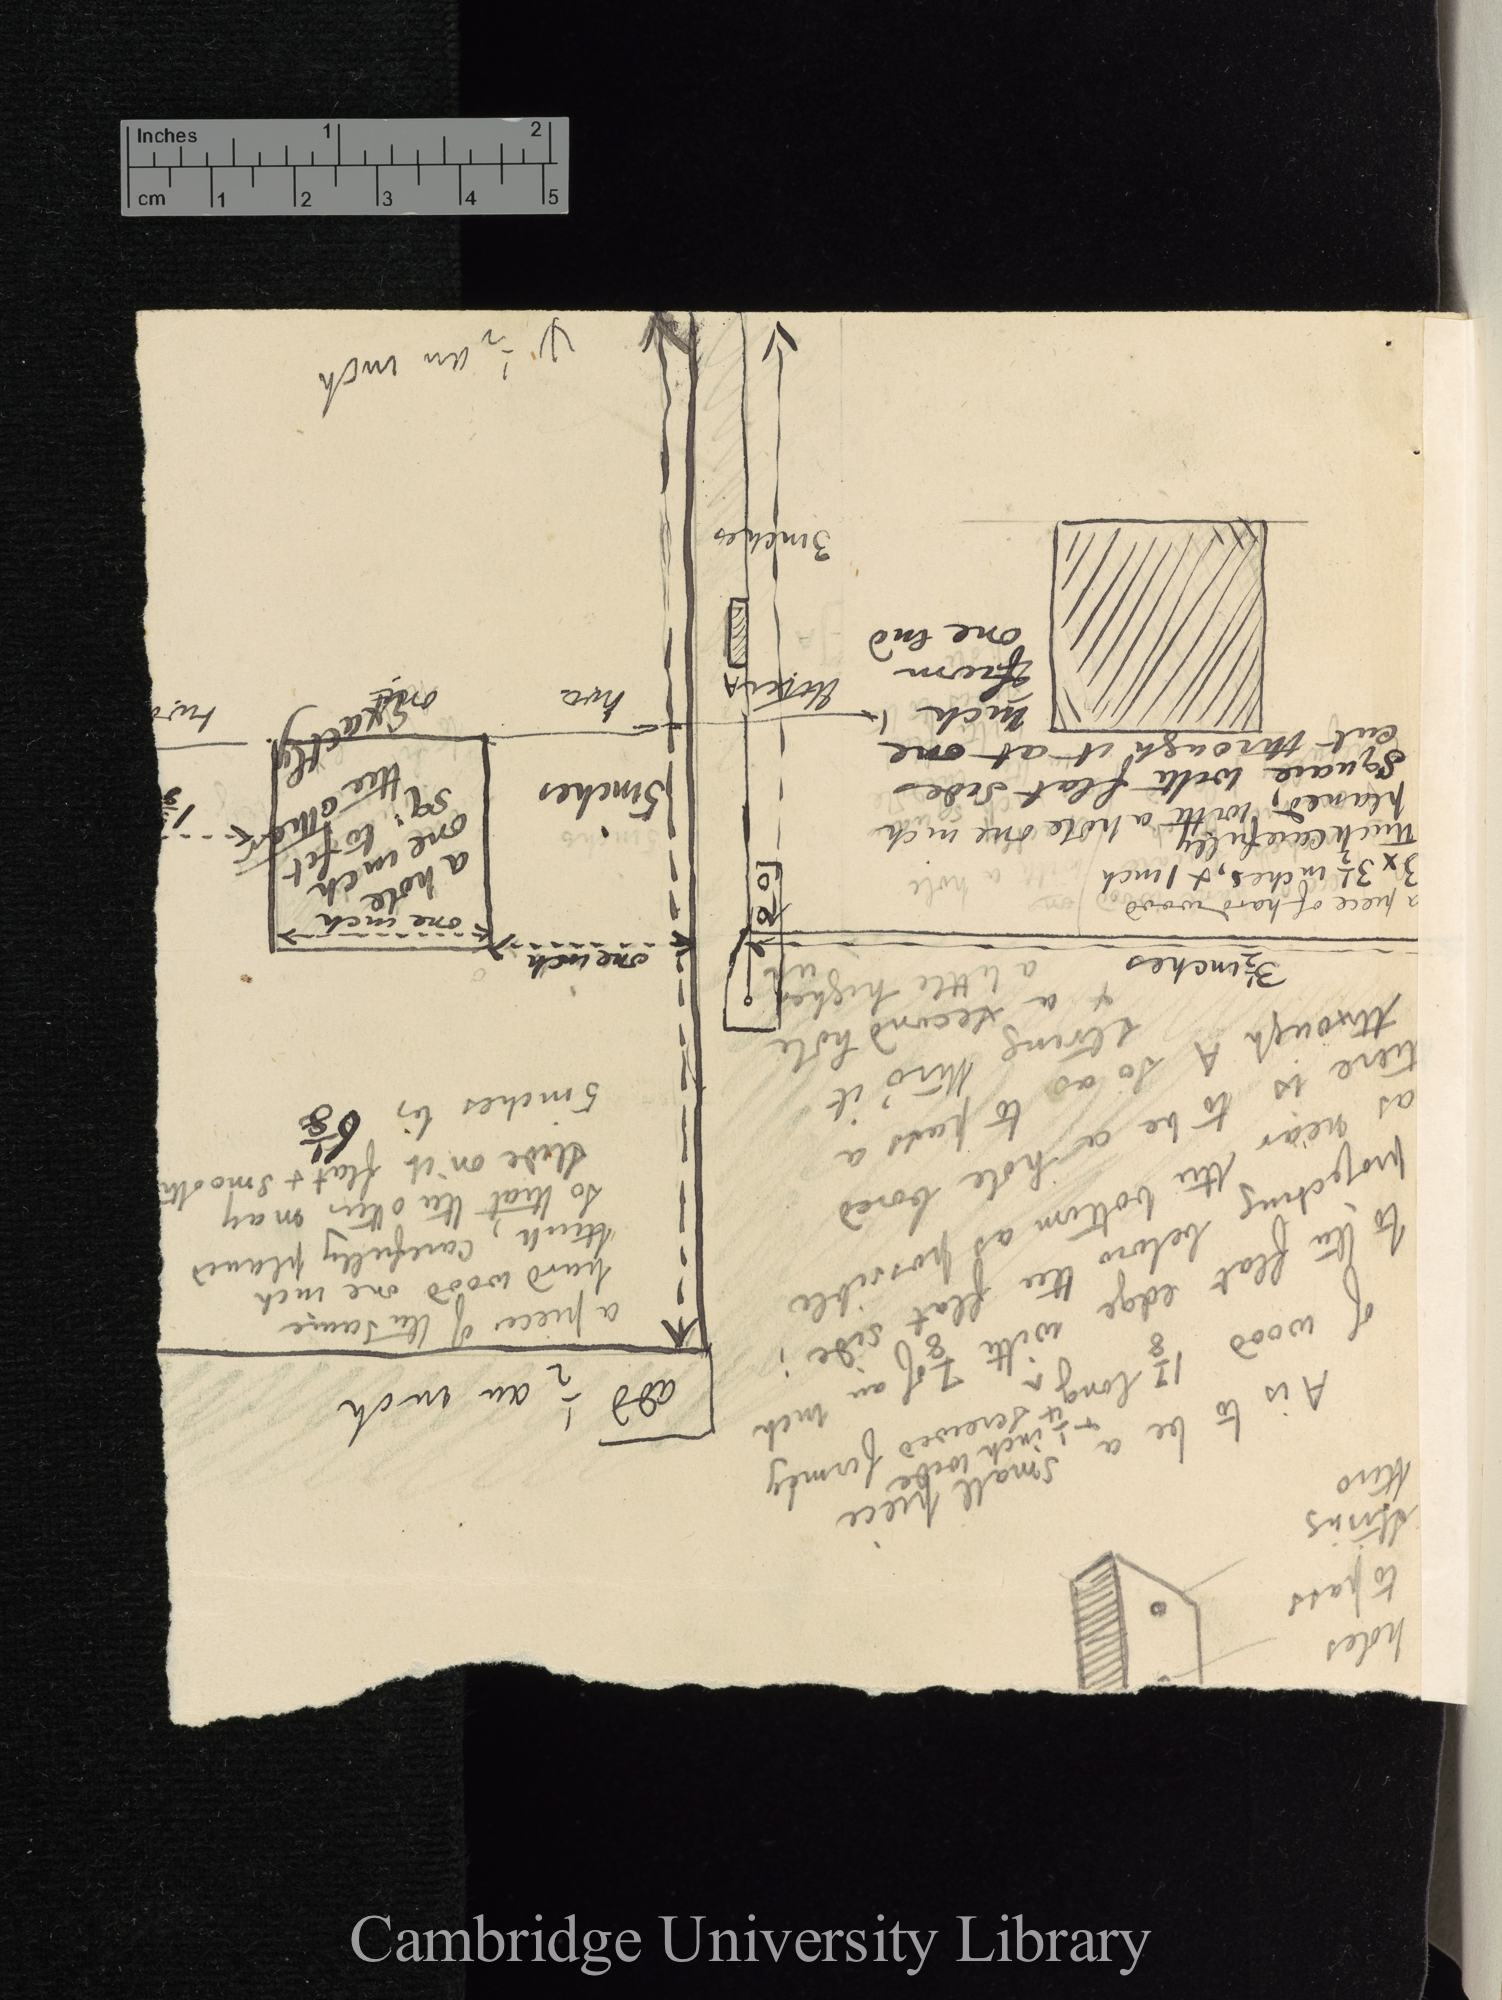 Inches 1 2
cm 1 2 3 4 5
holes
to pass
string
thro
A is to be a small piece
of wood + 1/4 inch wide
1 7/8 long & screwed firmly
to the flat edge with 7/8 of an inch
projecting below the flat side;
as near the bottom as possible
there is to be a hole bored
through A so as to pass a
string thro' it
+ a second hole
a little higher
3 1/2 inches
a piece of hard wood
3 x 3 1/2 inches, + 1 inch
thick carefully
planed, with a hole one inch
square with flat sides
cut through it at one
inch from
one end
A
3 inches
add 1/2 an inch
a piece of the same
hard wood one inch
thick, carefully planed
so that the other may
slide on it flat & smooth
5 inches by 6 1/8
one inch
one inch
a hole
one inch
sq: to fit
the other
exactly
5 inches
1 7/8
two
two
1/2 an inch
Cambridge University Library